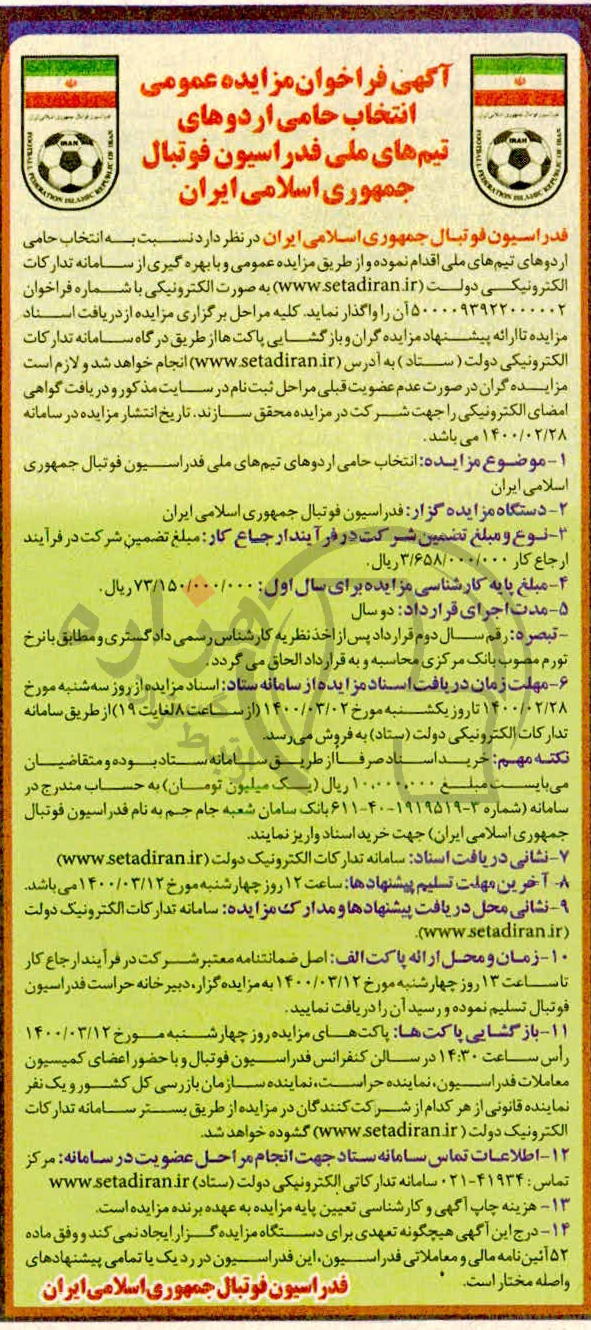 آگهی فراخوان مزایده عمومی
انتخاب حامی اردوهای
تیم‌های ملی فدراسیون فوتبال
جمهوری اسلامی ایران
IRAN
FOOTBALL FEDERATION ISLAMIC REPUBLIC OF IRAN
IRAN
FOOTBALL FEDERATION ISLAMIC REPUBLIC OF IRAN
فدراسیون فوتبال جمهوری اسلامی ایران در نظر دارد نسبت به انتخاب حامی
اردوهای تیم‌های ملی اقدام نموده و از طریق مزایده عمومی و با بهره گیری از سامانه تدارکات
الکترونیکی دولت (www.setadiran.ir) به صورت الکترونیکی با شماره فراخوان
۵۰۰۰۰۹۳۹۲۲۰۰۰۰۰۲ آن را واگذار نماید. کلیه مراحل برگزاری مزایده از دریافت اسناد
مزایده تا ارائه پیشنهاد مزایده گران و بازگشایی پاکت‌ها از طریق درگاه سامانه تدارکات
الکترونیکی دولت ( ستاد ) به آدرس (www.setadiran.ir) انجام خواهد شد و لازم است
مزایده گران در صورت عدم عضویت قبلی مراحل ثبت نام در سایت مذکور و دریافت گواهی
امضای الکترونیکی را جهت شرکت در مزایده محقق سازند. تاریخ انتشار مزایده در سامانه
۱۴۰۰/۰۲/۲۸ می باشد.
۱- موضوع مزایده: انتخاب حامی اردوهای تیم‌های ملی فدراسیون فوتبال جمهوری
اسلامی ایران
۲- دستگاه مزایده گزار: فدراسیون فوتبال جمهوری اسلامی ایران
۳- نوع و مبلغ تضمین شرکت در فرآیند ارجاع کار: مبلغ تضمین شرکت در فرآیند
ارجاع کار ۳/۶۵۸/۰۰۰/۰۰۰ ریال.
۴- مبلغ پایه کارشناسی مزایده برای سال اول: ۷۳/۱۵۰/۰۰۰/۰۰۰ ریال.
۵- مدت اجرای قرارداد: دو سال
- تبصره: رقم سال دوم قرارداد پس از اخذ نظریه کارشناس رسمی دادگستری و مطابق با نرخ
تورم مصوب بانک مرکزی محاسبه و به قرارداد الحاق می گردد.
۶- مهلت زمان دریافت اسناد مزایده از سامانه ستاد: اسناد مزایده از روز سه‌شنبه مورخ
۱۴۰۰/۰۲/۲۸ تا روز یکشنبه مورخ ۱۴۰۰/۰۳/۰۲ (از ساعت ۸ لغایت ۱۹) از طریق سامانه
تدارکات الکترونیکی دولت (ستاد) به فروش می‌رسد.
نکته مهم: خرید اسناد صرفاً از طریق سامانه ستاد بوده و متقاضیان
می‌بایست مبلغ ۱۰,۰۰۰,۰۰۰ ریال (یک میلیون تومان) به حساب مندرج در
سامانه (شماره ۳-۱۹۱۹۵۱۹-۴۰-۶۱۱ بانک سامان شعبه جام جم به نام فدراسیون فوتبال
جمهوری اسلامی ایران) جهت خرید اسناد واریز نمایند.
۷- نشانی دریافت اسناد: سامانه تدارکات الکترونیک دولت (www.setadiran.ir)
۸- آخرین مهلت تسلیم پیشنهادها: ساعت ۱۲ روز چهارشنبه مورخ ۱۴۰۰/۰۳/۱۲ می باشد.
۹- نشانی محل دریافت پیشنهادها و مدارک مزایده: سامانه تدارکات الکترونیک دولت
(www.setadiran.ir).
۱۰- زمان و محل ارائه پاکت الف: اصل ضمانتنامه معتبر شرکت در فرآیند ارجاع کار
تا ساعت ۱۳ روز چهارشنبه مورخ ۱۴۰۰/۰۳/۱۲ به مزایده گزار، دبیرخانه حراست فدراسیون
فوتبال تسلیم نموده و رسید آن را دریافت نمایید.
۱۱- بازگشایی پاکت‌ها: پاکت‌های مزایده روز چهارشنبه مورخ ۱۴۰۰/۰۳/۱۲
رأس ساعت ۱۴:۳۰ در سالن کنفرانس فدراسیون فوتبال و با حضور اعضای کمیسیون
معاملات فدراسیون، نماینده حراست، نماینده سازمان بازرسی کل کشور و یک نفر
نماینده قانونی از هر کدام از شرکت کنندگان در مزایده از طریق بستر سامانه تدارکات
الکترونیک دولت (www.setadiran.ir) گشوده خواهد شد.
۱۲- اطلاعات تماس سامانه ستاد جهت انجام مراحل عضویت در سامانه: مرکز
تماس: ۴۱۹۳۴-۰۲۱ سامانه تدارکاتی الکترونیکی دولت (ستاد) www.setadiran.ir
۱۳- هزینه چاپ آگهی و کارشناسی تعیین پایه مزایده به عهده برنده مزایده است.
۱۴- درج این آگهی هیچگونه تعهدی برای دستگاه مزایده گزار ایجاد نمی کند و وفق ماده
۵۲ آئین نامه مالی و معاملاتی فدراسیون، این فدراسیون در رد یک یا تمامی پیشنهادهای
واصله مختار است.
فدراسیون فوتبال جمهوری اسلامی ایران
هزاره